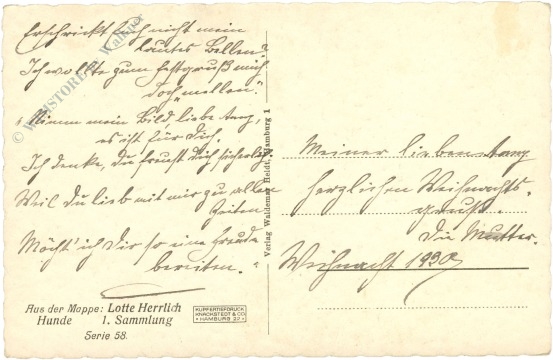 Erschrickt Euch nicht mein
lautes Bellen?
Ich wollte zum Festgruß mich
doch "mellen".
Nimm mein Bild, liebe
es ist für Dich.
Ich denke, Du freust Dich sicherlich
Weil Du lieb mit mir zu allen
Zeiten
Möcht' ich Dir so eine Freude
bereiten."
Aus der Mappe: Lotte Herrlich
Hunde 1. Sammlung
Serie 58.
KUPFERTIEFDRUCK
KNACKSTEDT & CO
HAMBURG 22
Verlag Waldemar Heidt, Hamburg 1
Meiner lieben
herzlichen Weihnachts-
gruß.
Die Mutter.
Weihnacht 1930